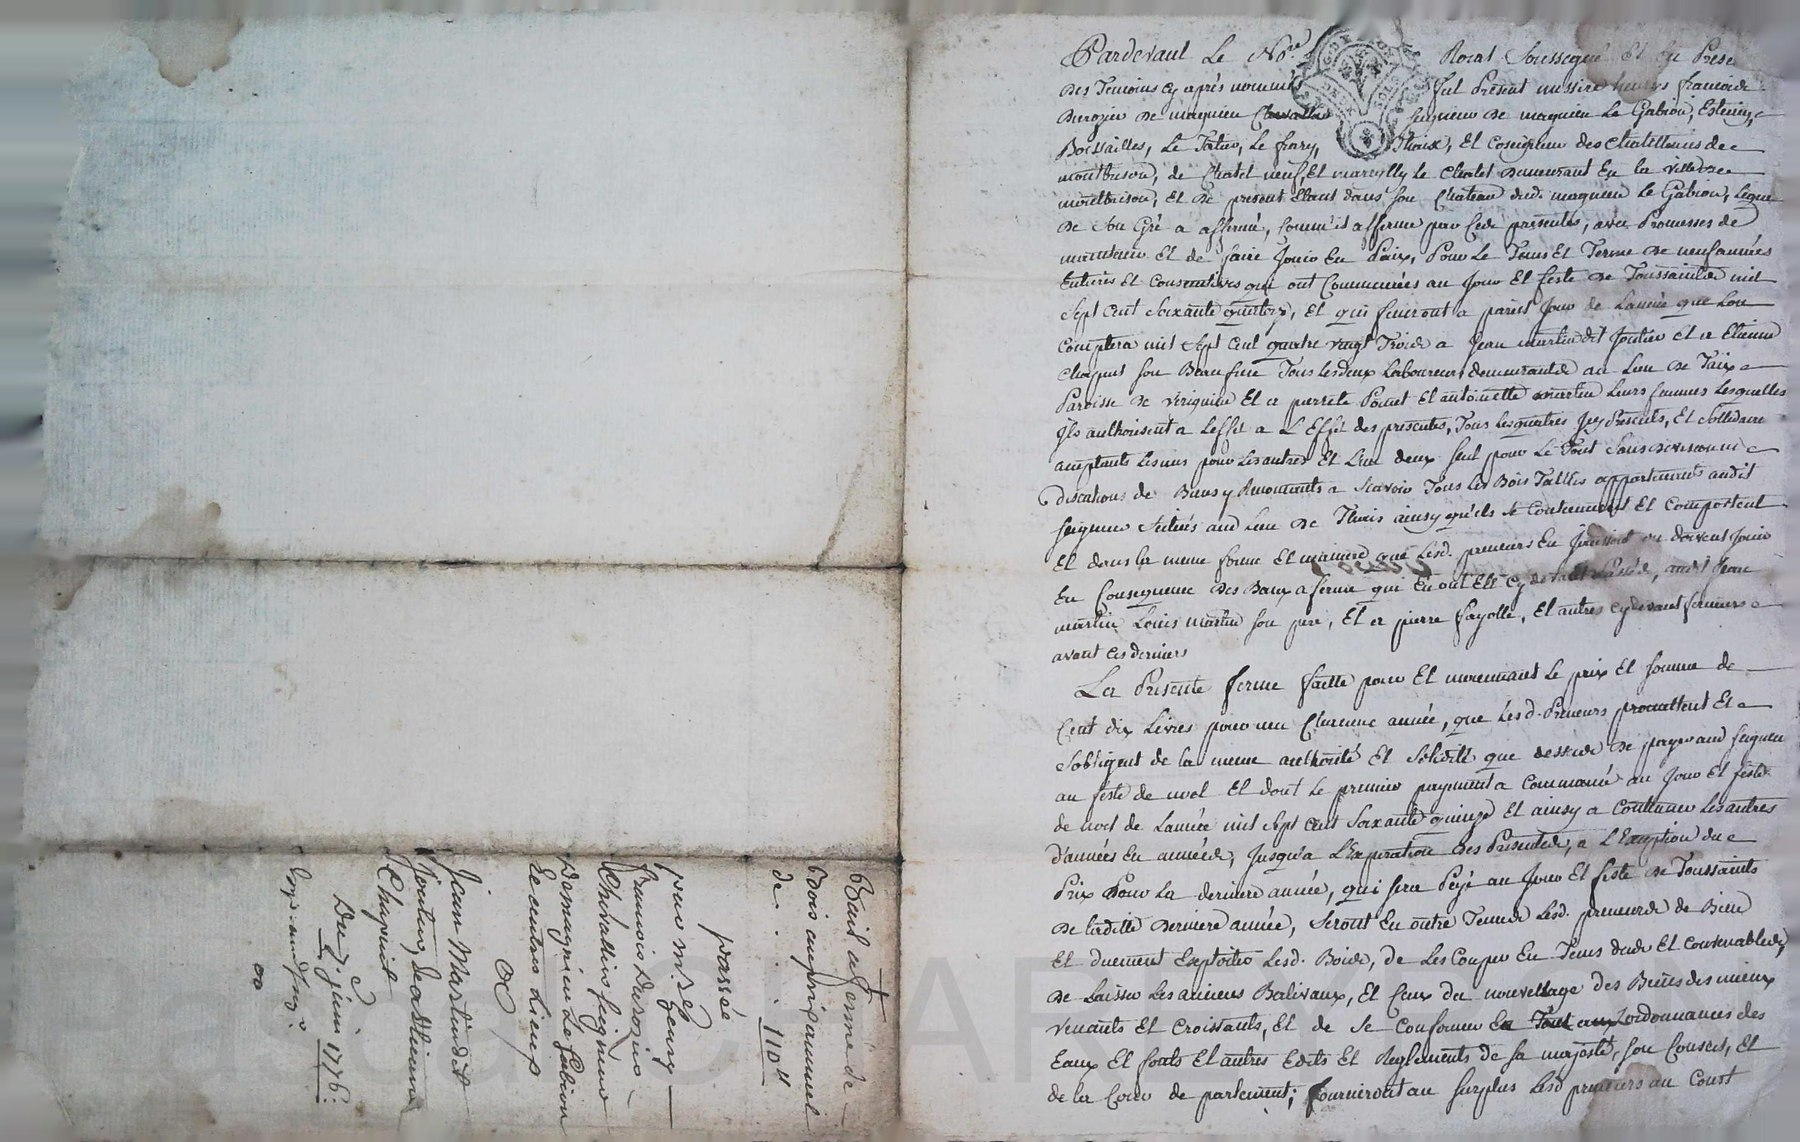 Pardevant Le No.re Royal Soussigné Et En Prese
Des Temoins cy après nommés fut Présent messire henrys francois
Durozier De magnieu Chevallier Seigneur De magnieu Le Gabion, Estaing,
Boissailles, Le Fortier, Le fiary, Thaix, Et Coseigneur des Chatellenies de
montbrison, de Chatel neuf, Et marcilly Le Chatel Demeurant En la ville De
montbrison, Et De present Etant dans Son Chateau dud. magnieu Le Gabion, Leque
De Son Gré a affermé, comme il afferme par Ces présentes, avec Promesses de
maintenir Et de faire Jouir En Paix, Pour Le Tems Et Terme De neuf années
Entieres Et Consecutives qui ont Commencées au Jour Et feste De Toussaints mil
Sept Cent Soixante quatorze, Et qui finiront a pareil Jour de Lannée que Lon
Comptera mil Sept Cent quatre vingt Trois a Jean martin dit Joutier Et a Etienne
Chapuit Son Beaufrere Tous Les deux Laboureurs demeurants au Lieu De Taix
Paroisse De Verignieu Et a pierrete Poncet Et antoinette martin Leurs femmes Lesquelles
Ils authorisent a Leffet a L'Effet des presentes, Tous Les quatres Icy Presents, Et Sollidaire
acceptants Les uns pour Les autres Et L'un deux Seul pour Le Tout Sans Division ni
discutions de Biens y Renonçants a Scavoir Tous Les Bois Taillis appartenants audit
Seigneur Scitués aud Lieu De Thaix ainsy qu'ils Se Contiennent Et Comportent
Et dans la meme forme Et maniere que Lesd. preneurs En Jouissent ou doivent Jouir
En Consequence Des Baux a ferme qui En ont Eté cy devant Passés, audit Jean
martin Louis martin Son pere, Et a pierre fayolle, Et autres cy devant fermiers
avant ces derniers
La Presente ferme faitte pour Et moyennant Le prix Et Somme de
Cent dix Livres pour une Chacune année, que Lesd. Preneurs promettent Et
S'obligent de la meme authorité Et Solidité que dessus De payer aud Seigneur
au feste de noel Et dont Le premier payment a Commancé au Jour Et feste
de noel de Lannée mil Sept Cent Soixante quinze Et ainsy a Continuer Les autres
d'années En années, Jusqu'a L'Expiration Des Presentes, a L'Exeption du
Prix Pour La derniere année, qui Sera Payé au Jour Et feste De Toussaints
De Ladite Derniere année, Seront En outre Tenus Lesd. preneurs de Bien
Et duement Exploiter Lesd. Bois, de Les Couper En Tems dus Et Convenables,
De Laisser Les anciens Balivaux, Et Ceux du nouvel age des Brins des mieux
venants Et Croissants, Et de Se Conformer En Tout aux ordonnances des
Eaux Et forêts Et autres Edits Et Reglements de Sa majesté, Son Conseil, Et
de la Cour de parlement; fourniront au Surplus Lesd preneurs au Cout
Bail a ferme de
Bois au prix annuel
de . . . 110#
passée
par M.re henry
francois Durozier
Chevallier Seigneur
De magnieu Le Gabion
Et autres Lieux
A
Jean Martin dit
Joutier, & a Etienne
Chapuit
Du 7.e juin 1776.